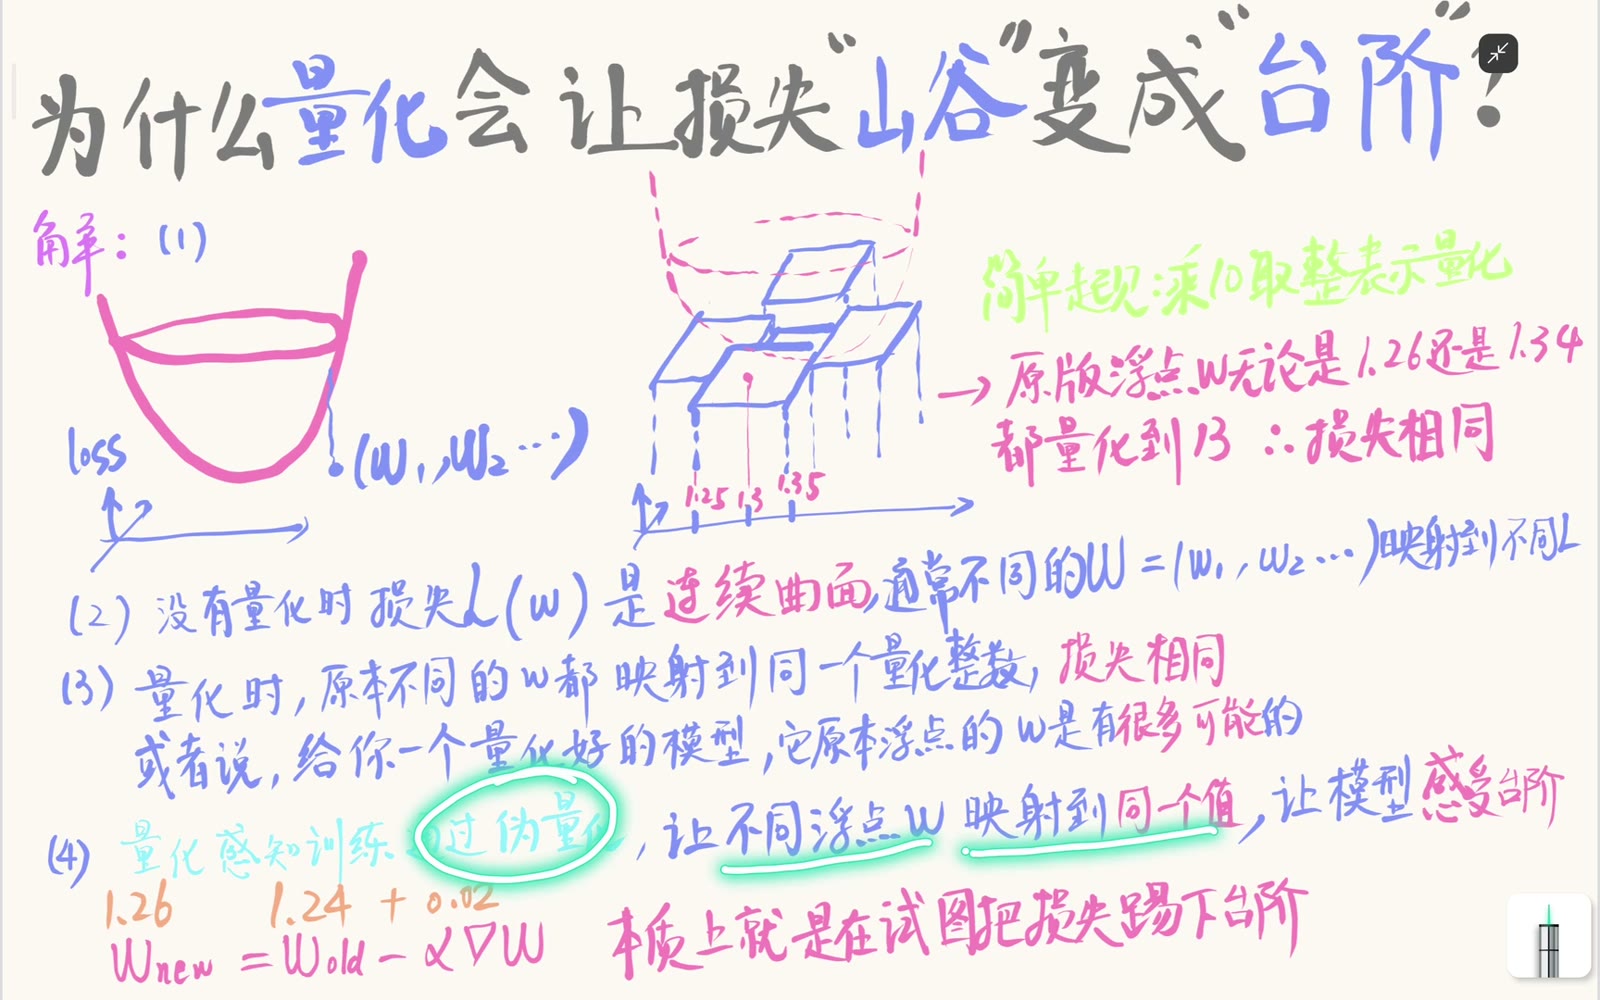 为什么量化会让损失“山谷”变成“台阶”?
解:(1)
loss
(W₁,W₂…)
1.25 1.3 1.35
简单起见:乘10取整表示量化
→原版浮点W无论是1.26还是1.34
都量化到13 ∴损失相同
(2)没有量化时损失L(w)是连续曲面,通常不同的W=(w₁,w₂…)映射到不同L
(3)量化时,原本不同的w都映射到同一个量化整数,损失相同
或者说,给你一个量化好的模型,它原本浮点的w是有很多可能的
(4)量化感知训练通过伪量化,让不同浮点W映射到同一个值,让模型感受台阶
1.26 1.24 + 0.02
Wnew = Wold - α∇W 本质上就是在试图把损失踢下台阶